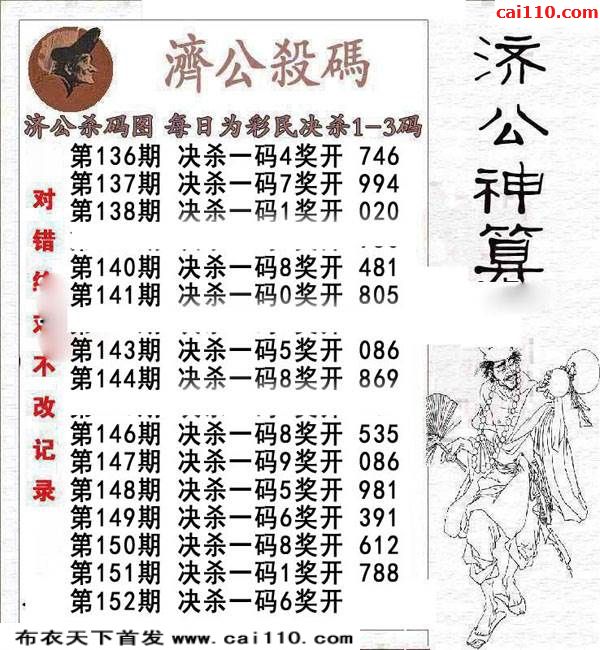 cai110.com
濟公殺碼
济公杀码图 每日为彩民决杀1-3码
第136期 决杀一码4奖开 746
第137期 决杀一码7奖开 994
第138期 决杀一码1奖开 020
第140期 决杀一码8奖开 481
第141期 决杀一码0奖开 805
第143期 决杀一码5奖开 086
第144期 决杀一码8奖开 869
第146期 决杀一码8奖开 535
第147期 决杀一码9奖开 086
第148期 决杀一码5奖开 981
第149期 决杀一码6奖开 391
第150期 决杀一码8奖开 612
第151期 决杀一码1奖开 788
第152期 决杀一码6奖开
对错不改记录
济公神算
布衣天下首发 www.cai110.com